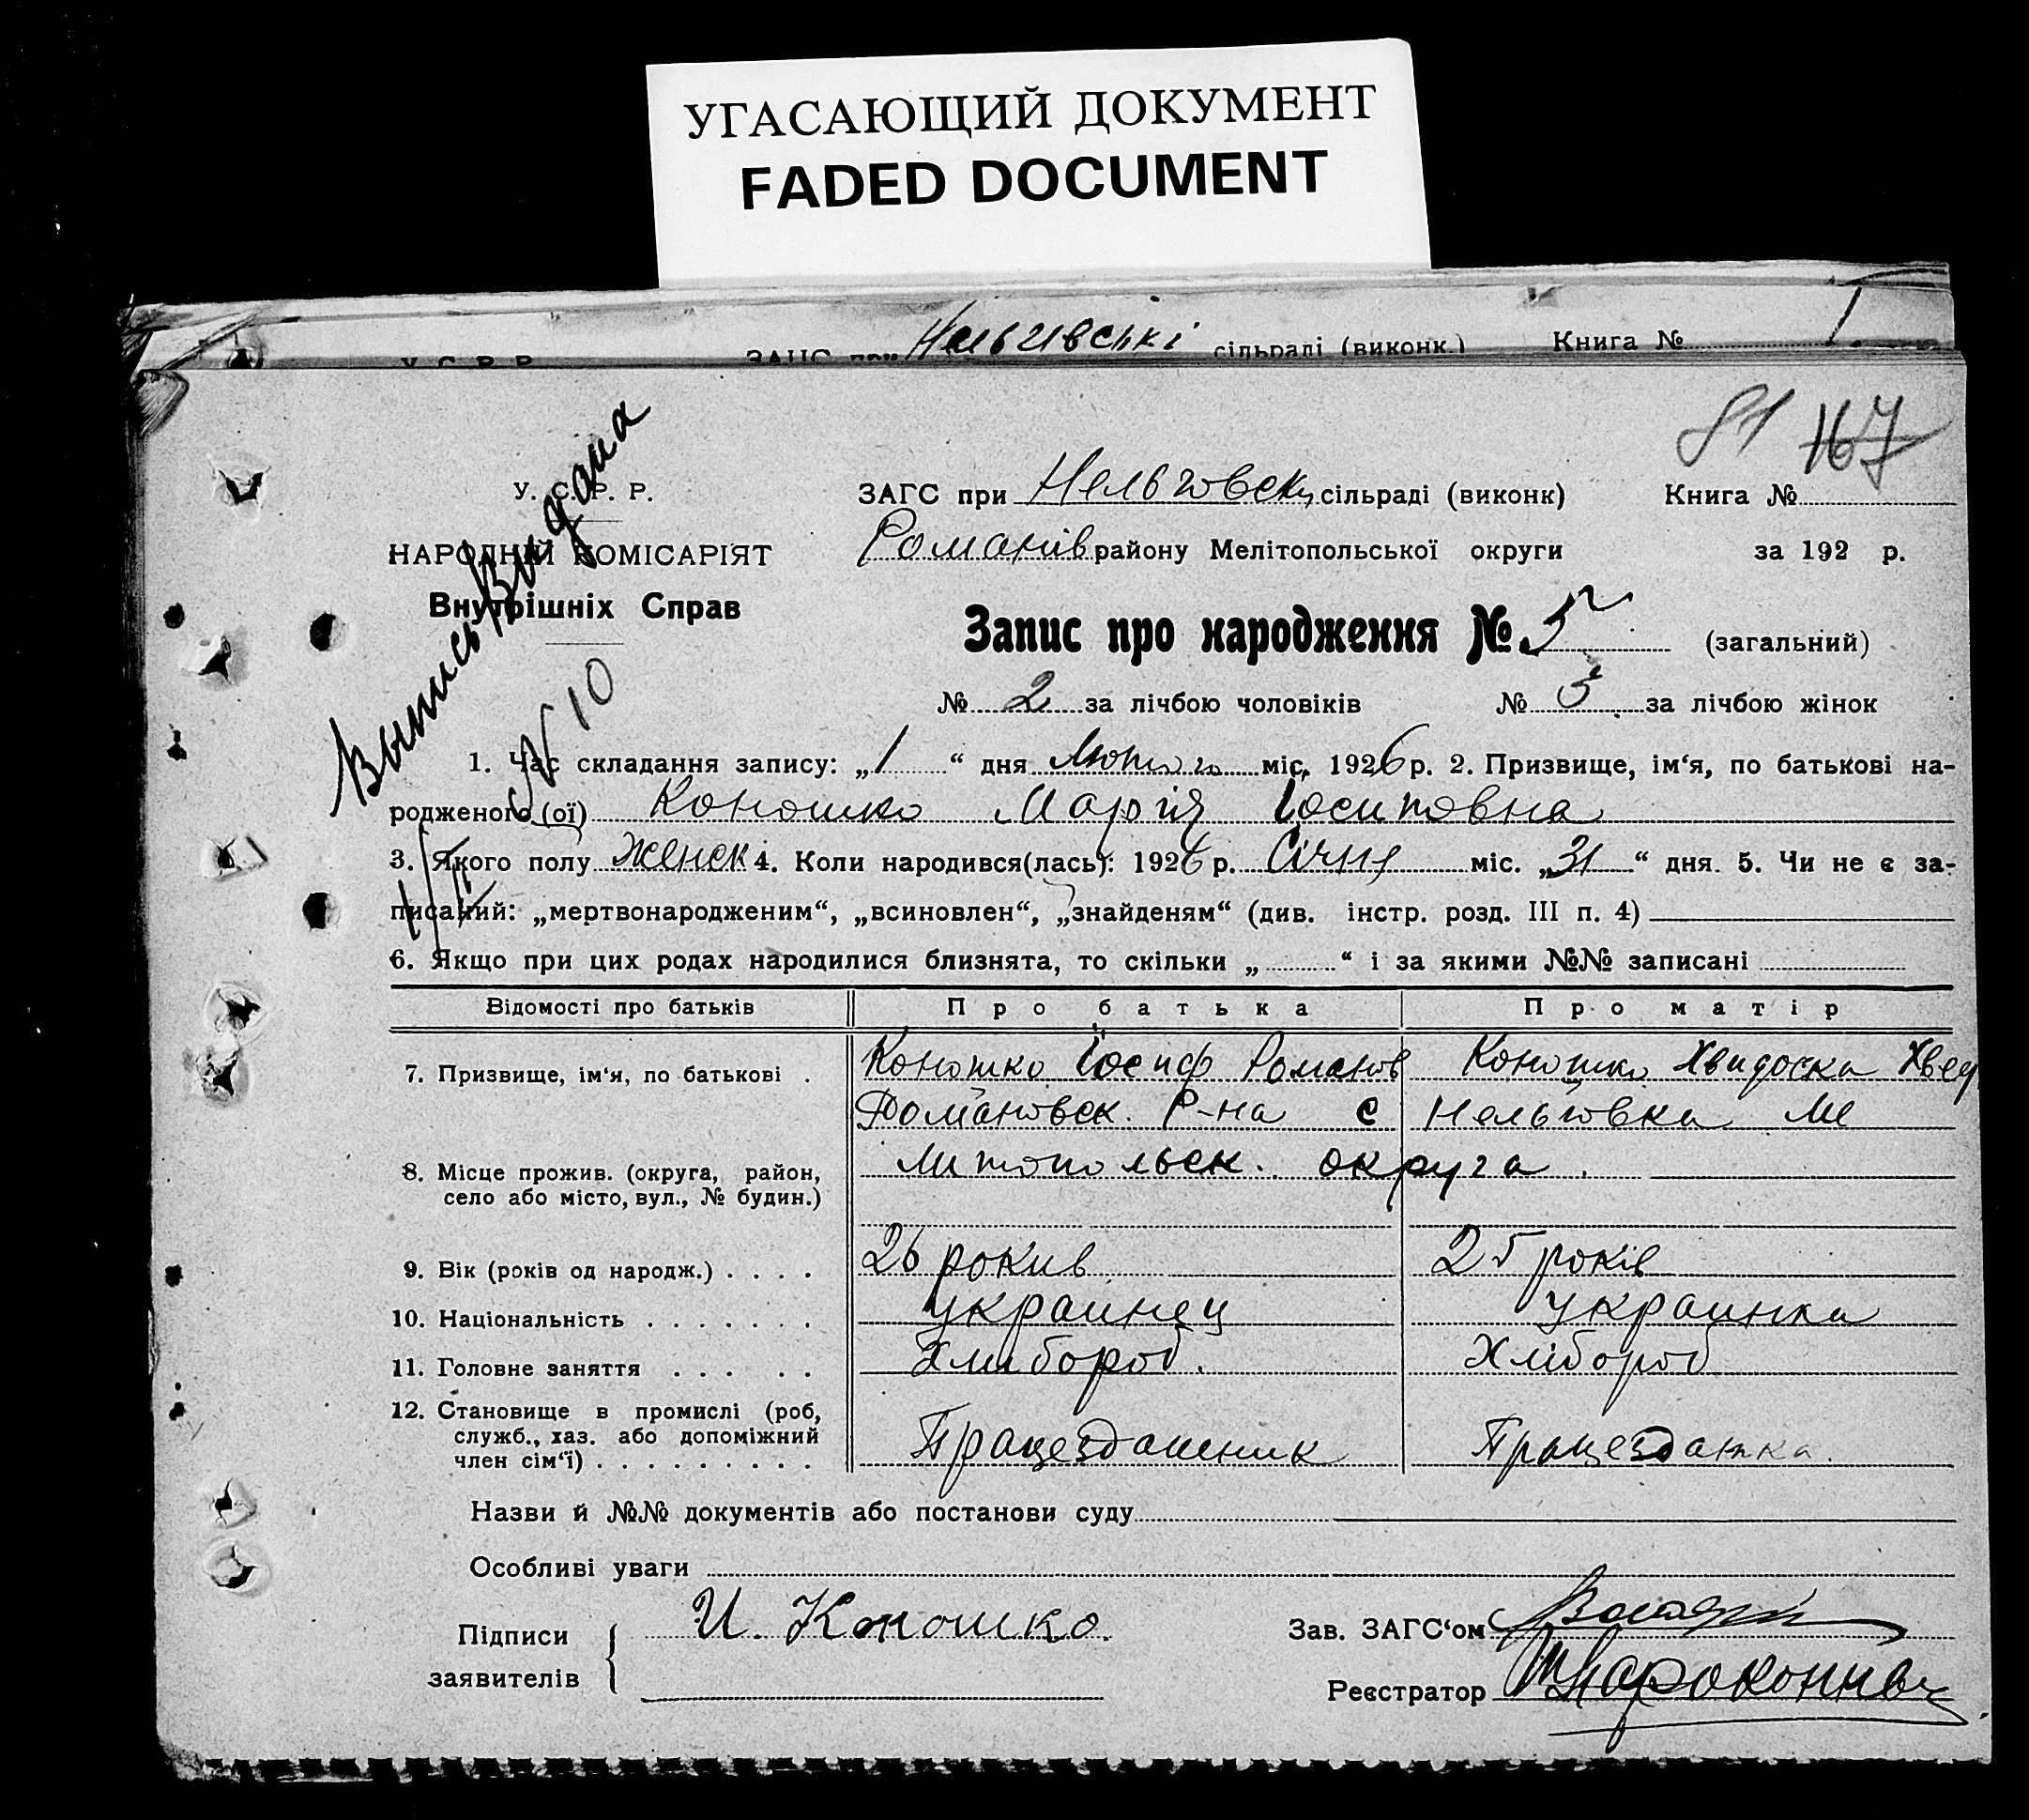 УГАСАЮЩИЙ ДОКУМЕНТ
FADED DOCUMENT
У. С. Р. Р. ЗАГС при Нельгивські сільраді (виконк.) Книга № 1
81 167
У. С. Р. Р. ЗАГС при Нельговск сільраді (виконк) Книга №
НАРОДНІЙ КОМІСАРІЯТ Романів району Мелітопольської округи за 192 р.
Внутрішніх Справ
Выпись Видана
N 10
Запис про народження № 5 (загальний)
№ 2 за лічбою чоловіків № 3 за лічбою жінок
1. Час складання запису: „1“ дня Лютого міс. 1926 р. 2. Призвище, ім‘я, по батькові на-
родженого (ої) Коношко Марія Іосиповна
3. Якого полу женск 4. Коли народився(лась): 1926 р. Січня міс. „31“ дня. 5. Чи не є за-
писаний: „мертвонародженим“, „всиновлен“, „знайденям“ (див. інстр. розд. III п. 4)
6. Якщо при цих родах народилися близнята, то скільки „ “ і за якими №№ записані
Відомості про батьків Про батька Про матір
7. Призвище, ім‘я, по батькові . Коношко Іосиф Романов Коношко Хвидоска Хвед
Романовск. Р-на с Нельговка Ме
литопольск. округа.
8. Місце прожив. (округа, район,
село або місто, вул., № будин.)
9. Вік (років од народж.) . . . . 26 рокив 25 років
10. Національність . . . . . . . украинец украинка
11. Головне заняття . . . . . Хлибороб. Хлібороб
12. Становище в промислі (роб,
служб., хаз. або допоміжний
член сім‘ї) . . . . . . . . . Працездатник Працездатка.
Назви й №№ документів або постанови суду
Особливі уваги
Підписи И. Коношко. Зав. ЗАГС‘ом
заявителів Реєстратор